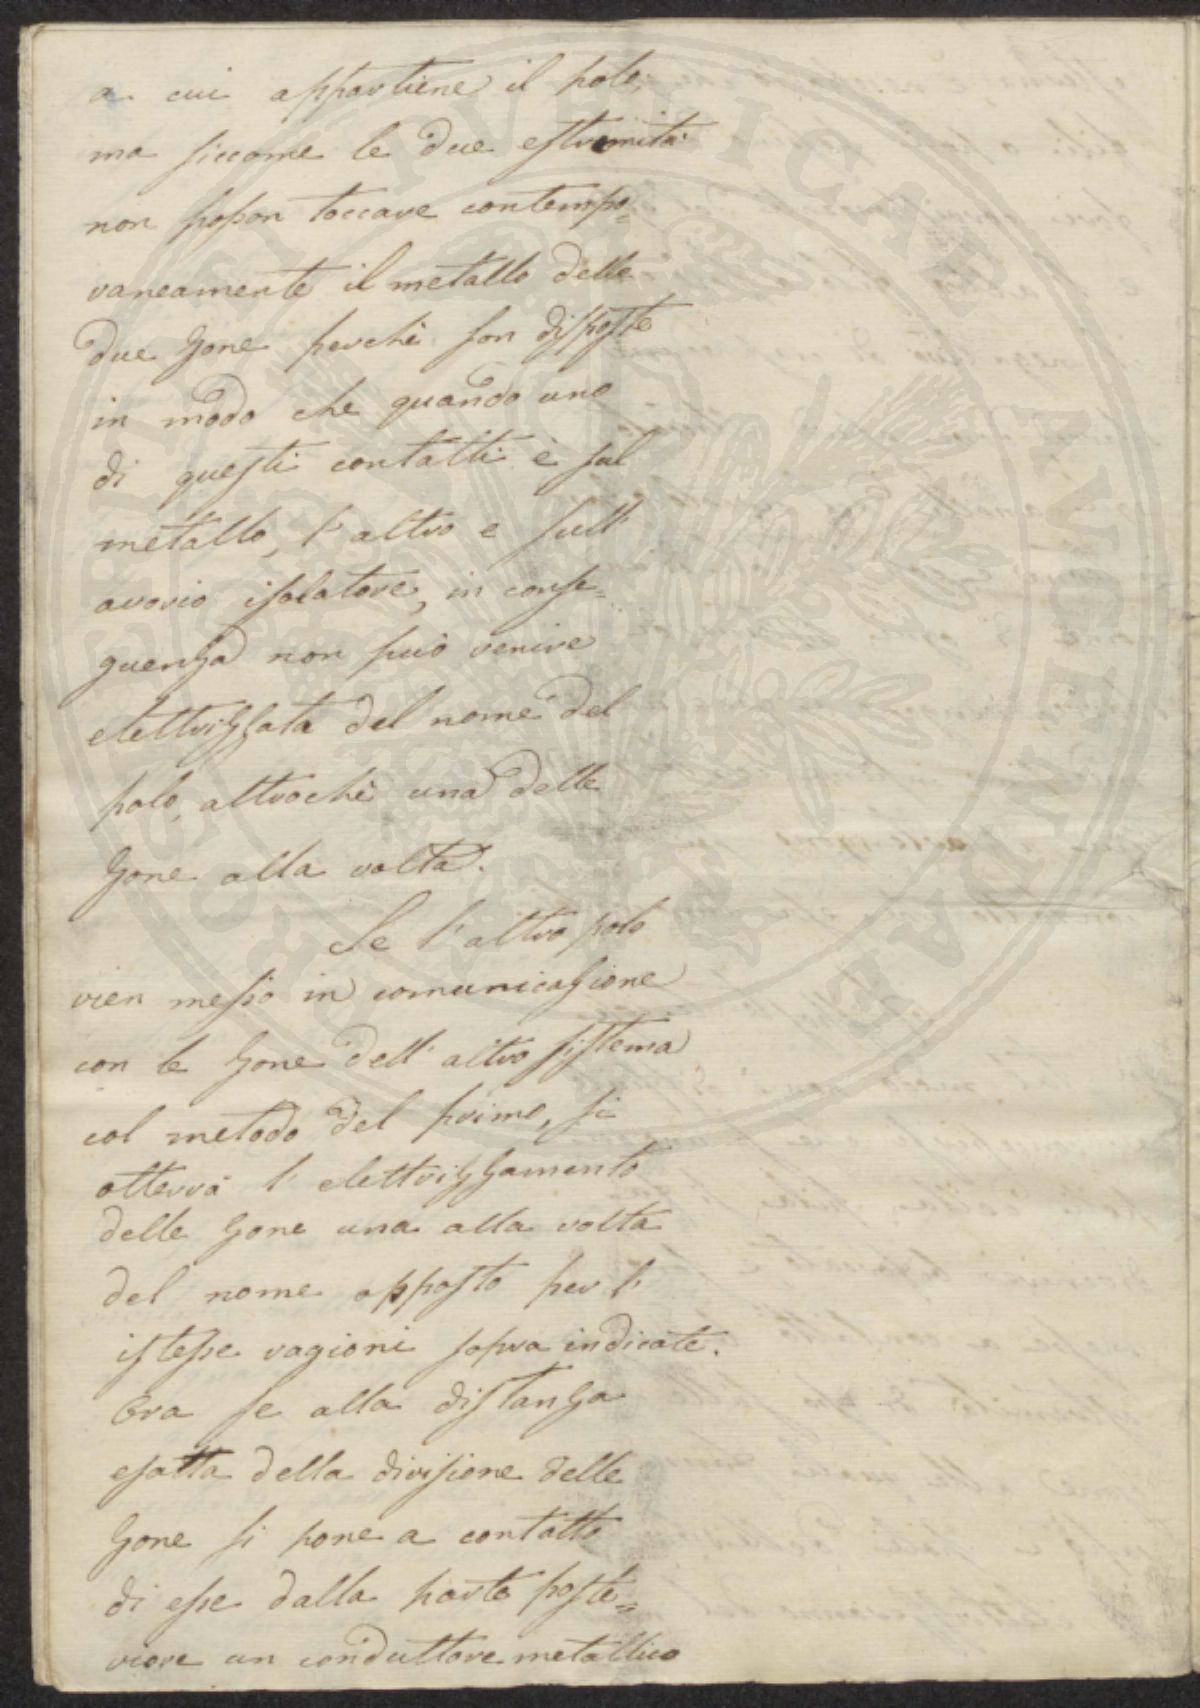 a cui appartiene il polo,
ma siccome le due estremità
non posson toccare contempo=
raneamente il metallo delle
due Zone perchè son disposte
in modo che quando uno
di questi contatti è sul
metallo, l'altro e sull'
avorio isolatore, in conse=
guenza non può venire
elettrizzata del nome del
polo, altrochè una delle
Zone alla volta.
Se l'altro polo
vien messo in comunicazione
con le Zone dell'altro sistema
col metodo del primo, si
otterrà l'elettrizzamento
delle Zone una alla volta
del nome opposto per l'
istesse ragioni sopra indicate.
Ora se alla distanza
esatta della divisione delle
Zone si pone a contatto
di esse dalla parte poste=
riore un conduttore metallico